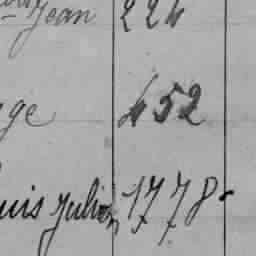 Jean 224
ge 452
uis Julien 1778